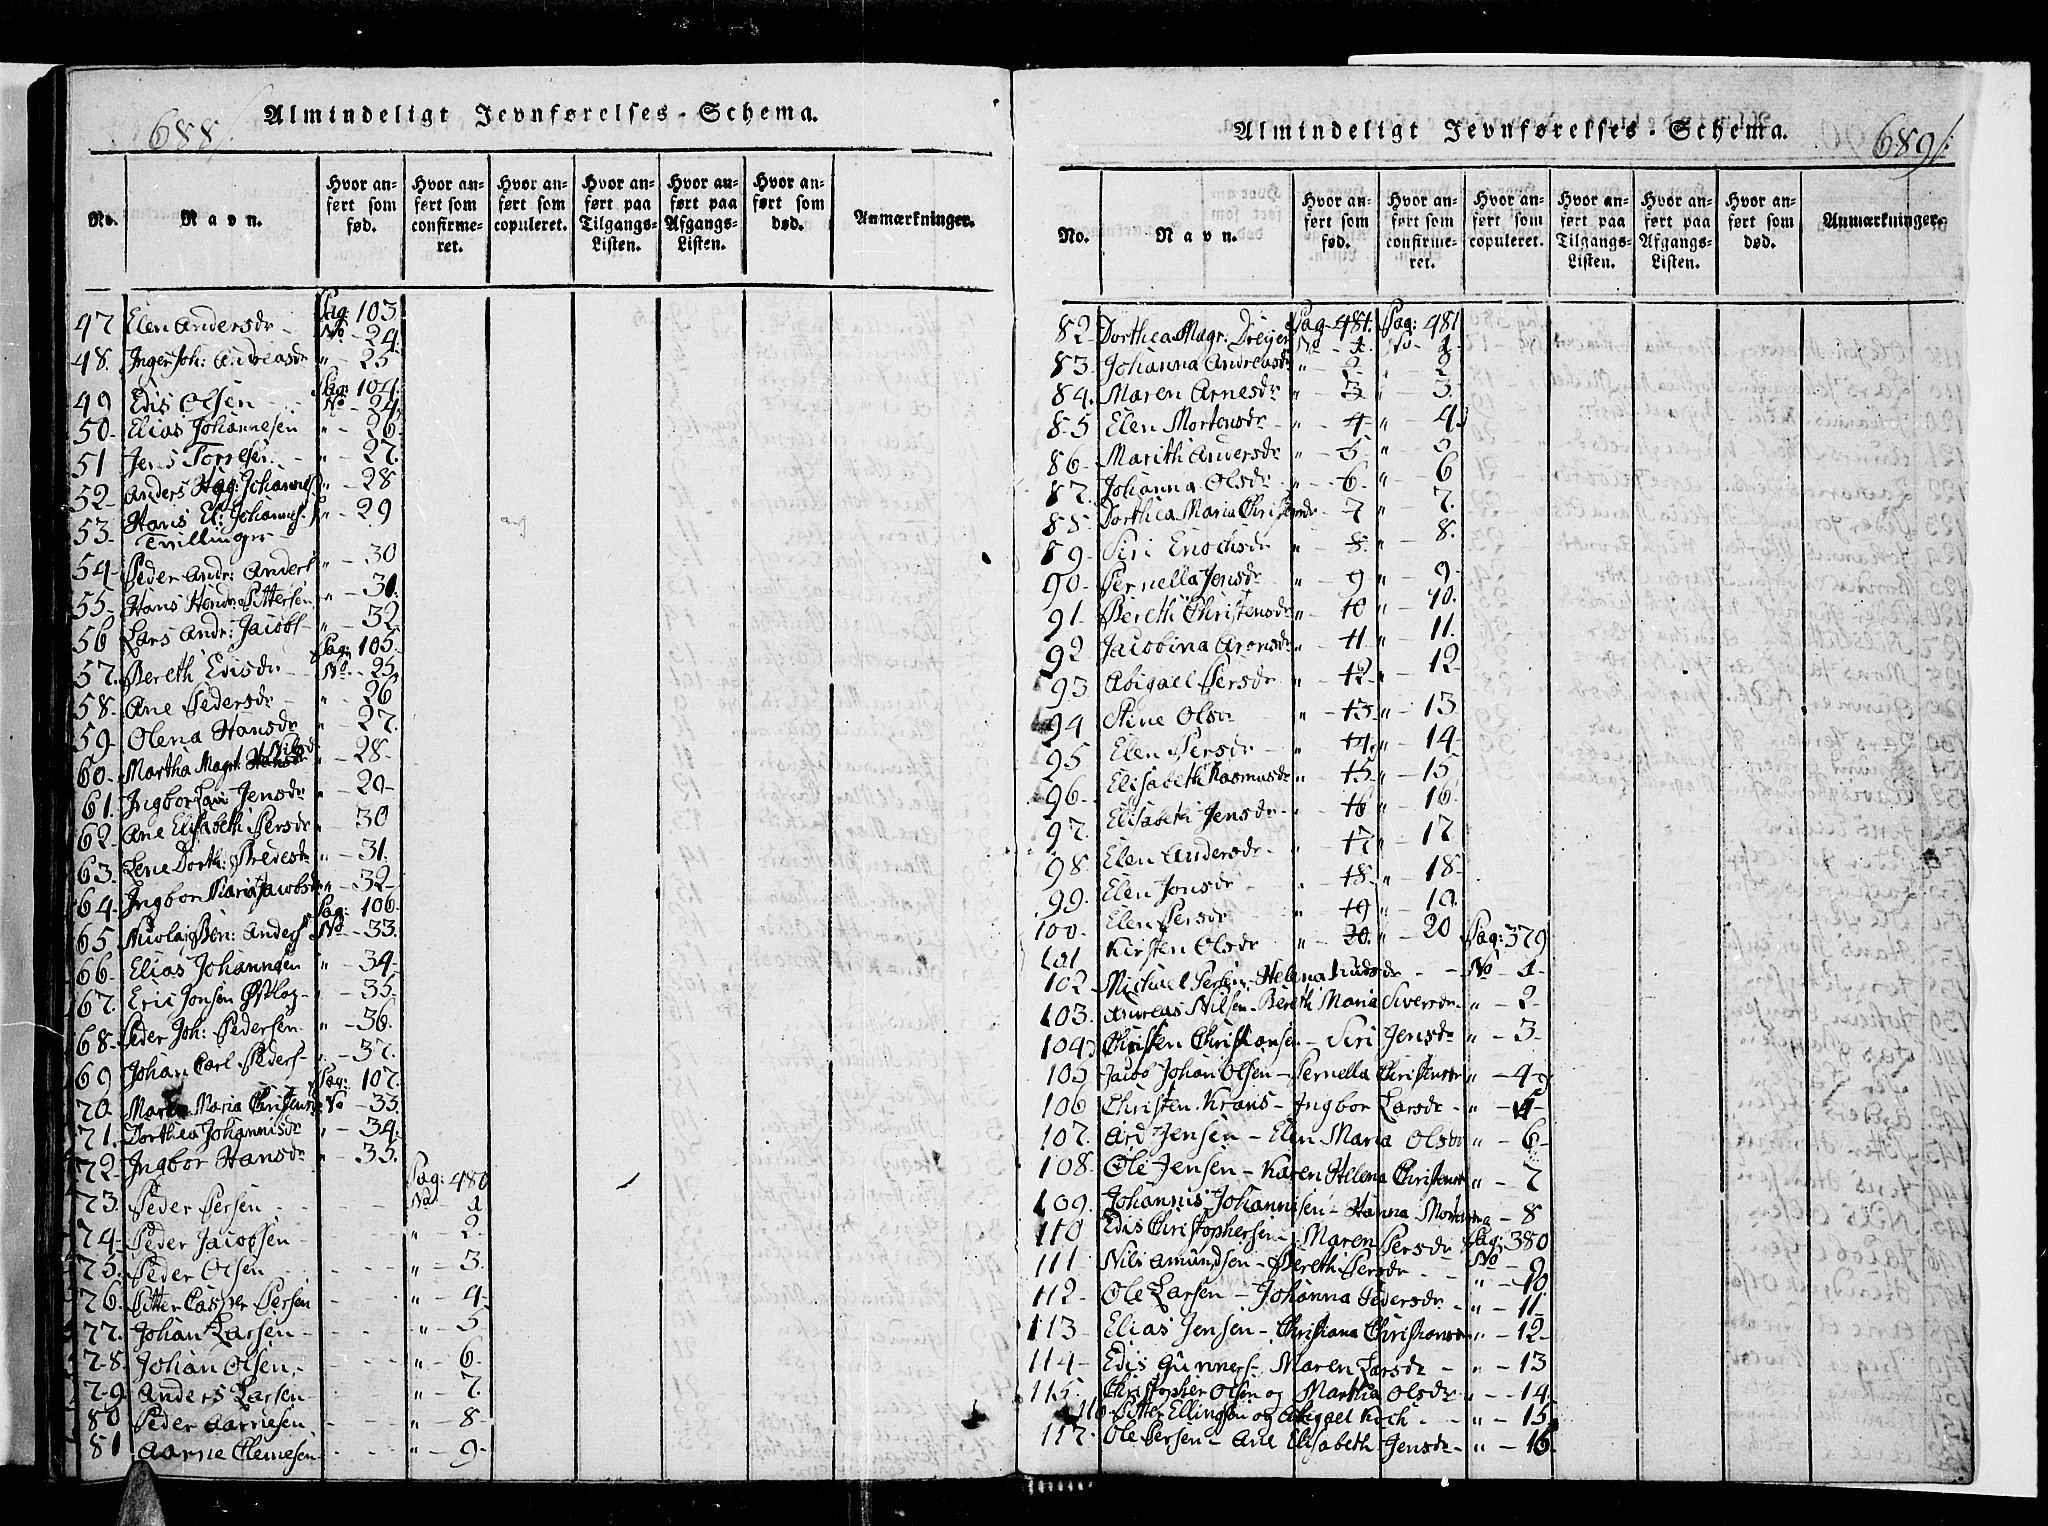 688/
Almindeligt Jevnførelses-Schema.
No. Navn. Hvor anført som fød. Hvor anført som confirmeret. Hvor anført som copuleret. Hvor anført paa Tilgangs-Listen. Hvor anført paa Afgangs-Listen. Hvor anført som død. Anmærkninger.
47 Elen Andersdr - Pag 103 No - 24
48. Inger Joh: Andreasdr " - 25
49 Edis Olsen - Pag: 104 No - 24
50- Elias Johannesen " - 26
51 Jens Torresen - " - 27.
52- Anders Hag: Johannes " - 28
53. Hans El: Johannes " - 29
Tvillinger
54- Peder Andr: Anders " - 30
55- Hans Hendr. Pittersen " - 31.
56 Lars Andr: Jacobs " - 32
57. Bereth Edisdr - Pag: 105. No. - 25
58- Ane Pedersdr - " - 26
59- Olena Hansdr " - 27.
60- Martha Magr. Nilsdr " - 28-
61. Ingbor Jensdr " - 29-
62- Ane Elisabeth Persdr " - 30
63- Lene Dorth: Predesdr " - 31.
64- Ingbor Maria Jacobsdr " - 32-
65- Nicolai Ben: Anders Pag: 106- No - 33.
66- Elias Johannsen " - 34-
67. Eric Jonsen " - 35
68- Peder Joh: Pedersen- " - 36.
69 Johan Carl Peders- " - 37.
70- Maren Maria Christensdr Pag: 107. No - 33
71. Dorthea Johannisdr " - 34.
72- Ingbor Hansdr " - 35.
73. Peder Persen - Pag: 480 No 1
74- Peder Jacobsen - " - 2.
75. Peder Olsen " - 3.
76- Pitter Casper Persen " - 4-
77. Johan Larsen - " - 5
78- Johan Olsen - " - 6.
79- Anders Larsen - " - 7.
80- Peder Aarnesen " - 8-
81 Aarne Clemesen - " - 9-
689/:
Almindeligt Jevnførelses-Schema.
No. Navn. Hvor anført som fød. Hvor anført som confirmeret. Hvor anført som copuleret. Hvor anført paa Tilgangs-Listen. Hvor anført paa Afgangs-Listen. Hvor anført som død. Anmærkninger.
82- Dorthea Magr: Dreijer Pag- 481. No - 1. Pag: 481 No - 1-
83. Johanna Andreasdr " - 2 " 2
84. Maren Arnesdr " - 3 " - 3.
85 Elen Mortensdr - " - 4 " - 4
86- Marith Andersdr " - 5 " - 5
87. Johanna Olsdr - " - 6 " - 6
88. Dorthea Maria Christensdr - 7 " - 7.
89- Siri Enochsdr " - 8. " - 8.
90- Pernella Jonsdr " - 9 " - 9-
91- Bereth Christensdr " - 10 " - 10.
92 Jacobina Aronsdr " - 11 " - 11.
93 Abigael Persdr " - 12- " - 12-
94 Stine Olsdr " - 13 " - 13
95 Elen Persdr - " - 14 " - 14-
96- Elisabeth Rasmusdr " - 15 " - 15
97. Elisabeth Jensdr - " - 16 " - 16-
98. Elen Andersdr- " - 17 " - 17
99. Elen Jonsdr " - 18. " - 18-
100- Elen Persdr " - 19 " - 19.
101 Kirsten Olsdr " - 20. " - 20
102 Michael Persen - Helena - - Pag: 379 No - 1-
103. Andreas Nilsen - Bereth Maria Siversdr- " - 2-
104 Christen Christiansen - Siri Jensdr " - 3-
105 Jacob Johan Olsen - Pernella Christensdr " - 4-
106 Christen Krans - Ingbor Larsdr - " -
107. Ard Jensen - Elen Maria Olsdr " - 6-
108. Ole Jensen - Karen Helena Christensdr " - 7
109. Johannis Johannisen - Hanna - 8
110 Edis Christophersen - Maren Persdr Pag: 380
111 Nils Amundsen - Bereth Persdr - - No - 9
112- Ole Larsen - Johanna Pedersdr - " - 10
113 Elias Jensen - Christiana Christiansdr " - 12-
114- Edis Gunners - Maren Larsdr - " - 13
115. Christopher Olsen og Martha Olsdr " - 14
116 Pitter Ellingsen og Abigael Koch - - " - 15
117- Ole Persen - Ane Elisabeth Jensdr - " - 16-